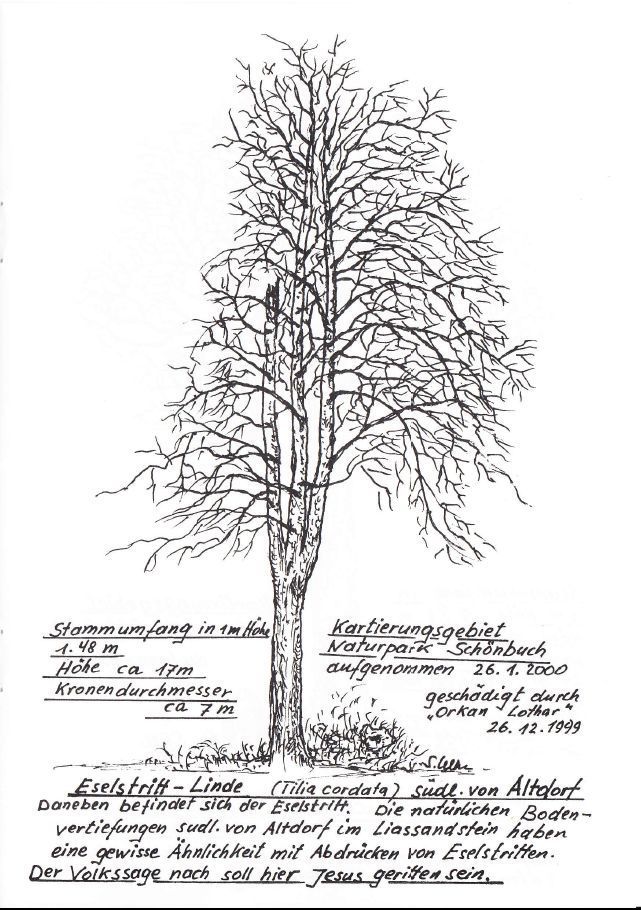 Stammumfang in 1m Höhe
1.48 m
Höhe ca 17m
Kronendurchmesser
ca 7 m
Kartierungsgebiet
Naturpark Schönbuch
aufgenommen 26.1.2000
geschädigt durch
„Orkan Lothar“
26.12.1999
Eselstritt - Linde (Tilia cordata) südl. von Altdorf
Daneben befindet sich der Eselstritt. Die natürlichen Boden-
vertiefungen südl. von Altdorf im Liassandstein haben
eine gewisse Ähnlichkeit mit Abdrücken von Eselstritten.
Der Volkssage nach soll hier Jesus geritten sein.